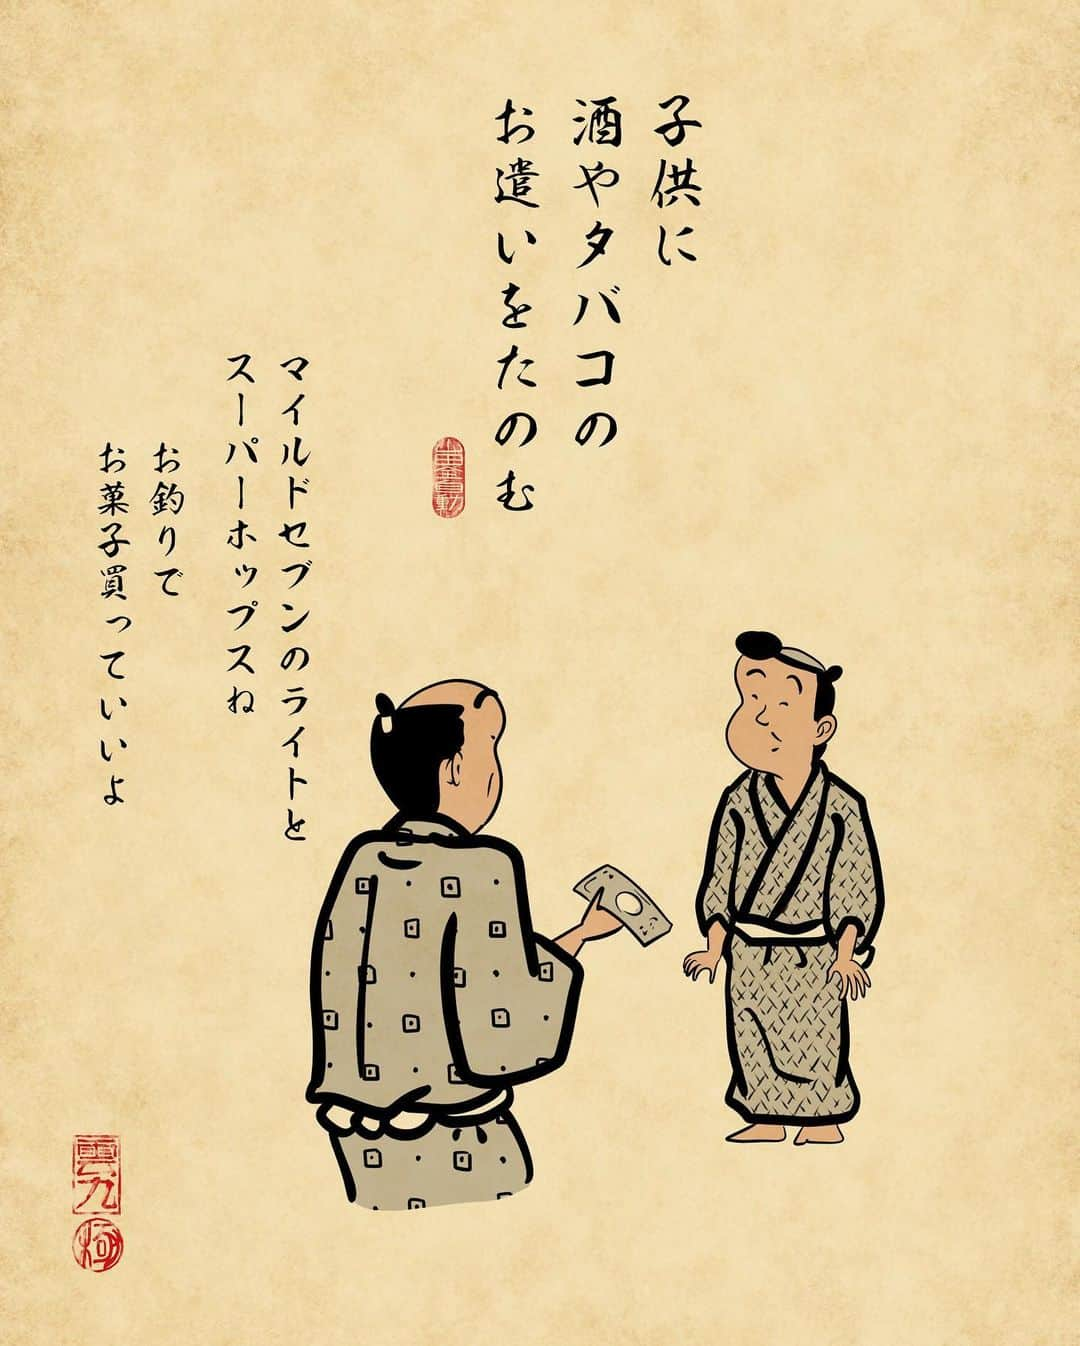 子供に
酒やタバコの
お遣いをたのむ
マイルドセブンのライトと
スーパーホップスね
お釣りで
お菓子買っていいよ